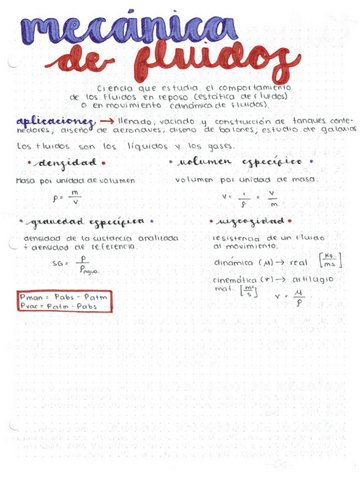 mecánica
de fluidos
Ciencia que estudia el comportamiento
de los fluidos en reposo (estática de fluidos)
o en movimiento (dinámica de fluidos).
aplicaciones → llenado, vaciado y construcción de tanques conte-
nedores, diseño de aeronaves, diseño de balones, estudio de galaxias
Los fluidos son los líquidos y los gases.
• densidad •
masa por unidad de volumen
ρ = m/v
• volumen específico •
volumen por unidad de masa.
v = 1/ρ = v/m
• gravedad específica •
densidad de la sustancia analizada
÷ densidad de referencia.
SG = ρ/ρagua
• viscosidad •
resistencia de un fluido
al movimiento.
dinámica (μ) → real [kg/ms]
cinemática (r) → artilugio
mat. [m²/s] v = μ/ρ
Pman = Pabs - Patm
Pvac = Patm - Pabs